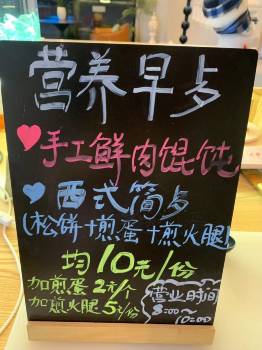 营养早点
手工鲜肉馄饨
西式简点
(松饼+煎蛋+煎火腿)
均10元/份
加煎蛋2元/个
加煎火腿5元/份
营业时间
8:00~
10:00